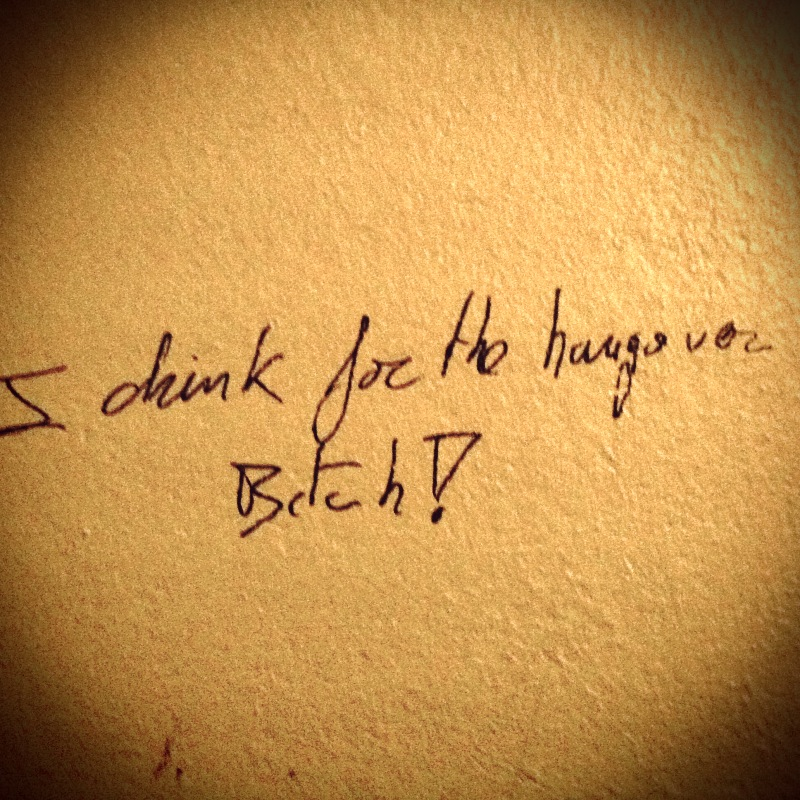 I drink for the hangover
Bitch!